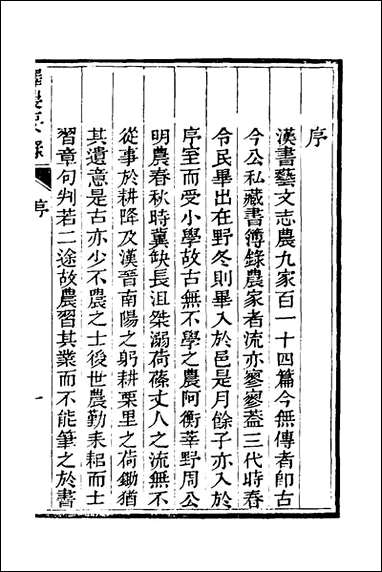 序
漢書藝文志農九家百一十四篇今無傳者卽古
今公私藏書簿錄農家者流亦寥寥葢三代時春
令民畢出在野冬則畢入於邑是月餘子亦入於
序室而受小學故古無不學之農阿衡莘野周公
明農春秋時冀缺長沮桀溺荷蓧丈人之流無不
從事於耕降及漢晉南陽之躬耕栗里之荷鋤猶
其遺意是古亦少不農之士後世農勤耒耜而士
習章句判若二途故農習其業而不能筆之於書
序
一